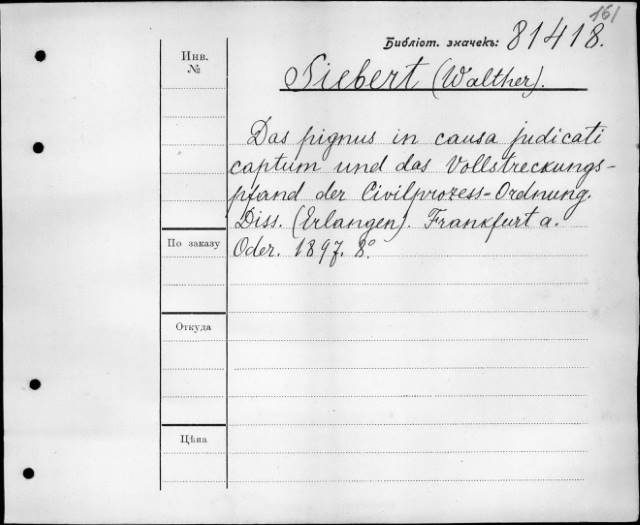 161
Библіот. значекъ: 81418.
Инв.
№
Siebert (Walther).
Das pignus in causa judicati
captum und das Vollstreckungs-
pfand der Civilprozess-Ordnung.
Diss. (Erlangen). Frankfurt a.
По заказу
Oder. 1897. 8°.
Откуда
Цѣна